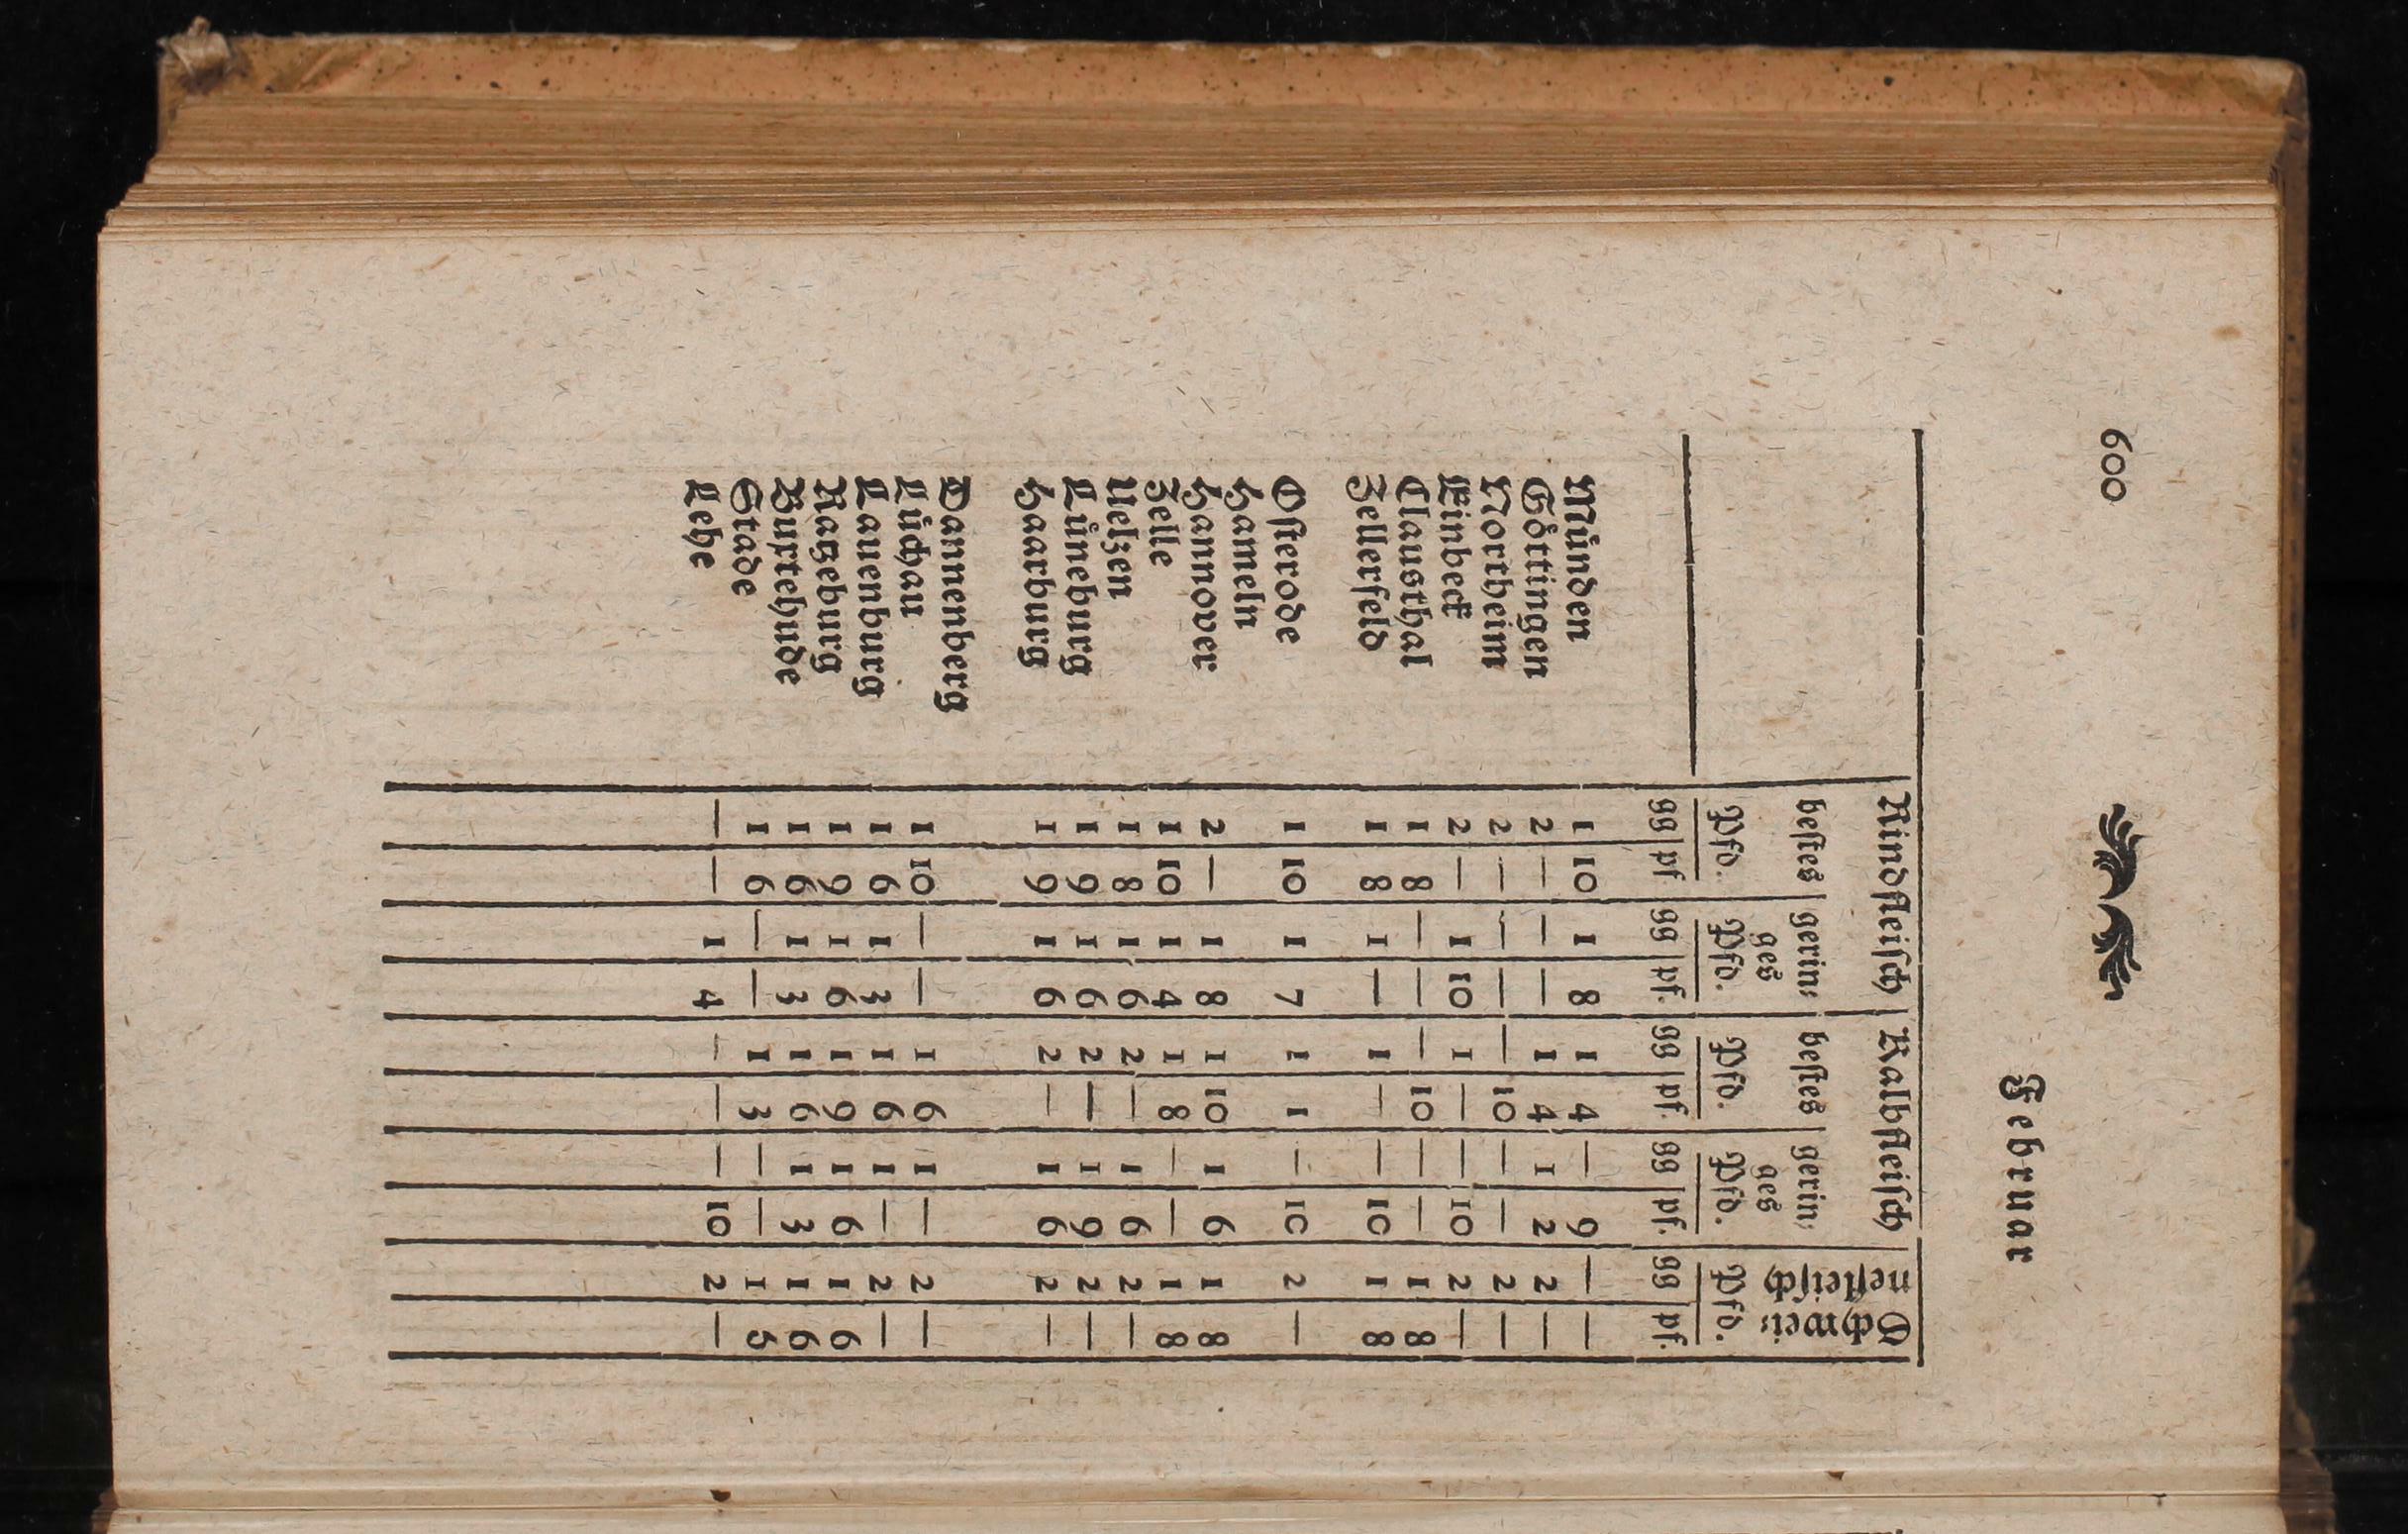 600
Februar
Rindfleisch | Kalbfleisch | Schwei⸗
bestes | gerin⸗ | bestes | gerin⸗ | nefleisch
ges ges
Pfd. Pfd. Pfd. Pfd. Pfd.
gg | pf gg | pf. gg | pf. gg | pf. gg | pf.
Münden 1 10 1 8 1 4 — 9 — —
Göttingen 2 — — — 1 4 1 2 2 —
Northeim 2 — — — — 10 — — 2 —
Einbeck 2 — 1 10 1 — — 10 2 —
Clausthal 1 8 — — — 10 — — 1 8
Zellerfeld 1 8 1 — 1 — — 10 1 8
Osterode 1 10 1 7 1 1 — 10 2 —
Hameln
Hannover 2 — 1 8 1 10 1 6 1 8
Zelle 1 10 1 4 1 8 — — 1 8
Uelzen 1 8 1 6 2 — 1 6 2 —
Lüneburg 1 9 1 6 2 — 1 9 2 —
Haarburg 1 9 1 6 2 — 1 6 2 —
Dannenberg
Lüchau 1 10 — — 1 6 1 — 2 —
Lauenburg 1 6 1 3 1 6 1 — 2 —
Ratzeburg 1 9 1 6 1 9 1 6 1 6
Buxtehude 1 6 1 3 1 6 1 3 1 6
Stade 1 6 — — 1 3 — — 1 5
Lehe — — 1 4 — — — 10 2 —